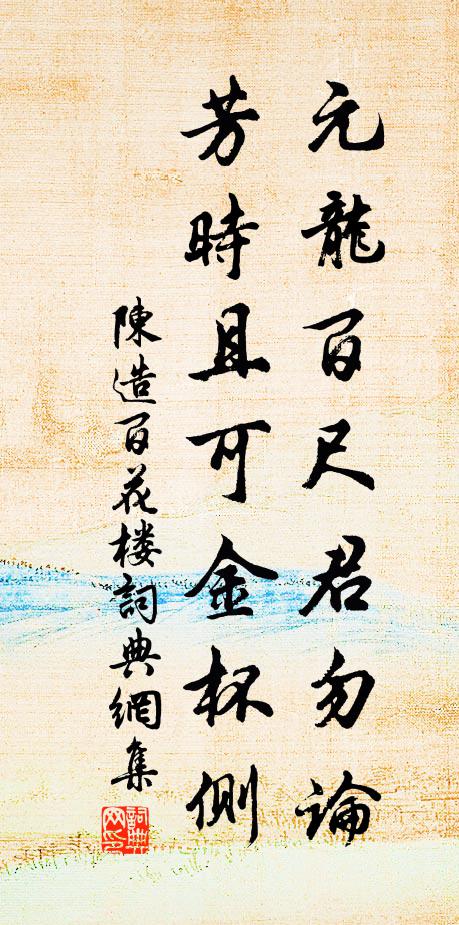 元龍百尺君勿論
芳時且可金杯側
陳造百花楼詞典網集
詞典网印